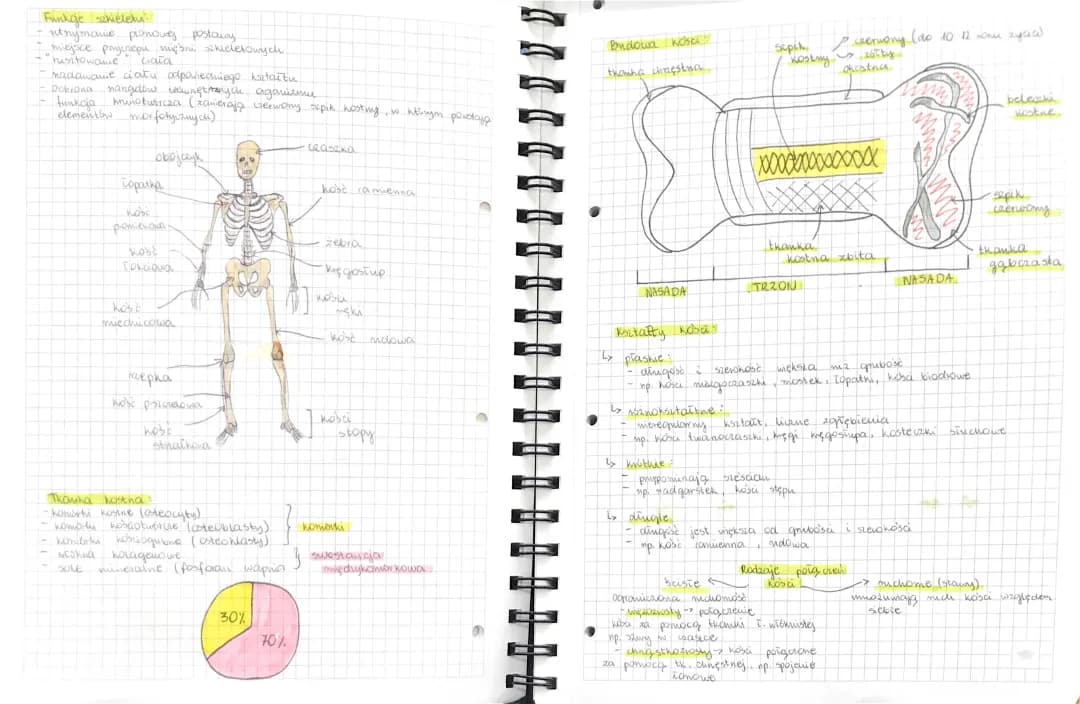 Funkcje szkieletu:
- utrzymanie pionowej postawy
- miejsce przyczepu mięśni szkieletowych
- "rusztowanie" ciała
- nadawanie ciału odpowiedniego kształtu
- ochrona narządów wewnętrznych organizmu
- funkcja krwiotwórcza (zawierają czerwony szpik kostny, w którym powstają
elementów morfotycznych)
czaszka
obojczyk
łopatka
kość ramienna
kość
promieniowa
żebra
kość
łokciowa
kręgosłup
kości
ręki
kość
miednicowa
kość udowa
rzepka
kość piszczelowa
kość
strzałkowa
kości
stopy
Tkanka kostna:
- komórki kostne (osteocyty)
- komórki kościotwórcze (osteoblasty)
- komórki kościogubne (osteoklasty)
- włókna kolagenowe
- sole mineralne (fosforan wapnia)
komórki
substancja
międzykomórkowa
30%
70%
Budowa kości:
szpik
kostny
czerwony (do 10 12 roku życia)
żółty
okostna
tkanka chrzęstna
beleczki
kostne
szpik
czerwony
tkanka
kostna zbita
tkanka
gąbczasta
NASADA
TRZON
NASADA
Kształty kości:
↳ płaskie:
- długość i szerokość większa niż grubość
- np. kości mózgoczaszki, mostek, łopatki, kości biodrowe
↳ różnokształtne:
- nieregularny kształt, liczne zagłębienia
- np. kości twarzoczaszki, kręgi kręgosłupa, kosteczki słuchowe
↳ krótkie:
- przypominają sześcian
- np. nadgarstek, kości stępu
↳ długie
- długość jest większa od grubości i szerokości
- np. kość ramienna, udowa
Rodzaje połączeń
kości
ścisłe
ograniczona ruchomość
- więzozrosty → połączenie
kości za pomocą tkanki ł. włóknistej
np. szwy w czaszce
- chrząstkozrosty → kości połączone
za pomocą tk. chrzęstnej, np. spojenie
łonowe
ruchome (stawy)
umożliwiają ruch kości względem
siebie